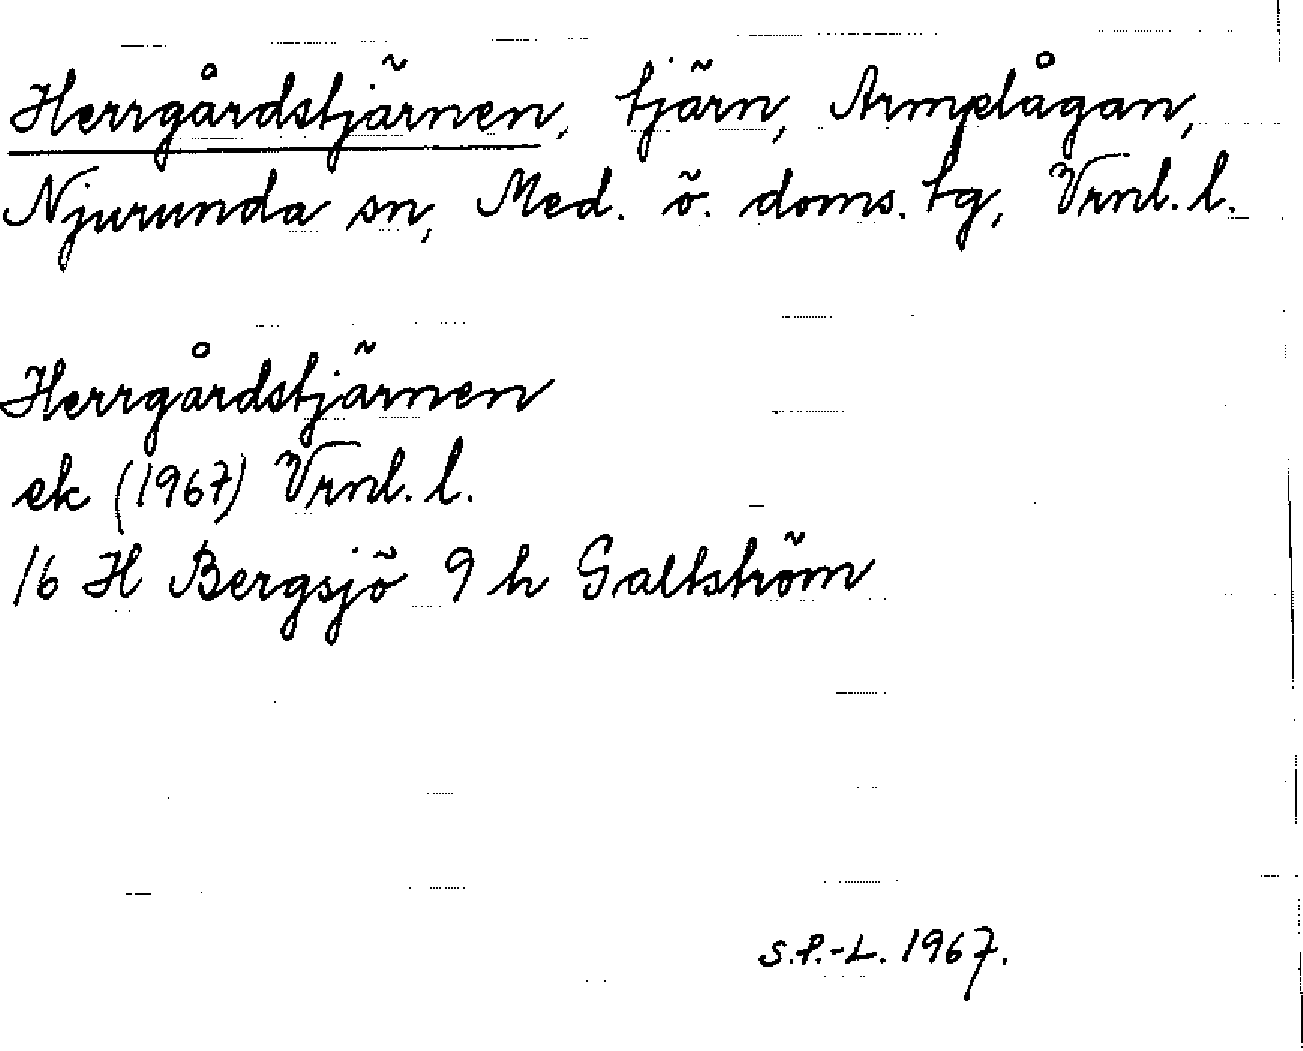 Herrgårdstjärnen, tjärn, Armelågan,
Njurunda sn, Med. ö. doms. tg, Vrnl. l.
Herrgårdstjärnen
ek (1967) Vrnl. l.
16 H Bergsjö 9 h Galtström
S.P.-L. 1967.